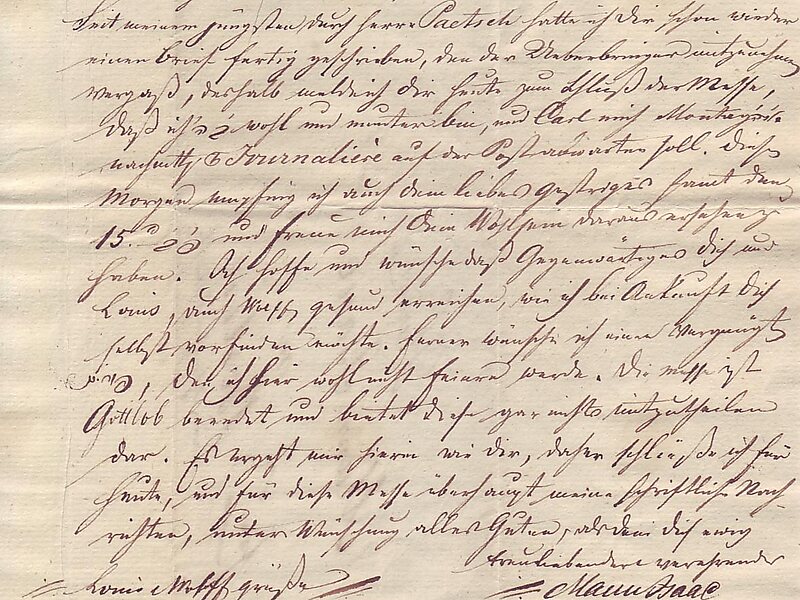 Seit meinem jüngsten durch Herrn Paetsch hatte ich dir schon wieder
einen Brief fertig geschrieben, den der Ueberbringer mitzunehmen
vergaß, deshalb melde ich dir heute zum Schluß der Messe,
daß ich wohl und munter bin, und Carl mich Montag
nachmittg Journalière auf der Post abwarten soll. Diesen
Morgen empfing ich auch dein liebes Gestriges samt dem
15. und freue mich dein Wohlsein daraus ersehen zu
haben. Ich hoffe und wünsche daß Gegenwärtiges dich und
Louis, auch Wolff gesund erreichen, wie ich bei Ankunft dich
selbst vorfinden möchte. Ferner wünsche ich einen vergnügt
, den ich hier wohl nicht feiern werde. Die Messe ist
Gottlob beendet und bietet diese gar nichts mitzutheilen
dar. Es ergeht mir hierin wie dir, daher schließe ich für
heute, und für diese Messe überhaupt meine schriftlichen Nach-
richten, unter Wünschung alles Guten, als dein dich ewig
treuliebender verehrender
Louis Wolff grüße Mann Isaac